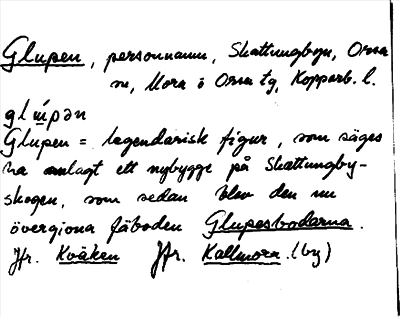 Glupen, personnamn, Skattungbyn, Orsa
sn, Mora o Orsa tg, Kopparb. l.
glúpən
Glupen = legendarisk figur, som säges
ha anlagt ett nybygge på Skattungby-
skogen, som sedan blev den nu
övergivna fäboden Glupesbodarna.
Jfr. Kväken Jfr. Kallmora. (by)